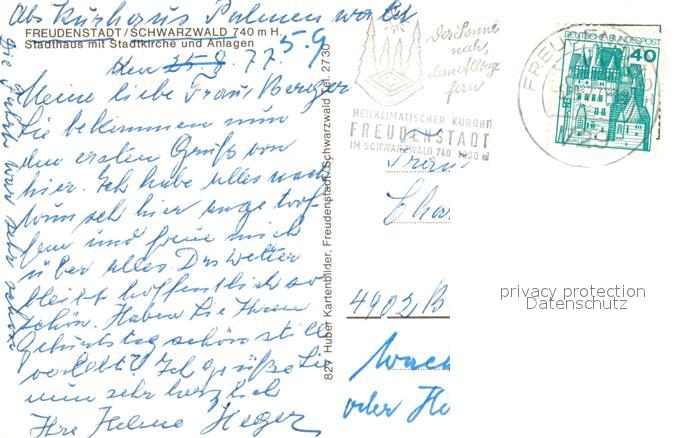 Abs Kurhaus Palmenwald
FREUDENSTADT/SCHWARZWALD 740 m H.
Stadthaus mit Stadtkirche und Anlagen
5.9
den 25.8.77.
Meine liebe Frau Berger
Sie bekommen nun
den ersten Gruß von
hier. Ich habe alles nach
Wunsch hier angetrof-
fen und freue mich
über alles Das Wetter
bleibt hoffentlich so
schön. Haben Sie Ihren
Geburtstag schön still
verlebt? Ich grüße Sie
nun sehr herzlich
Ihre Helene Heger
Die Fahrt war sehr schön
827 Huber Kartenbilder, Freudenstadt/Schwarzwald Tel. 2730
Der Sonne
nah,
dem Alltag
fern
HEILKLIMATISCHER KURORT
FREUDENSTADT
IM SCHWARZWALD 740-1000 m
DEUTSCHE BUNDESPOST
40
FREUD
Frau
Char
4902 B
oder He
privacy protection
Datenschutz